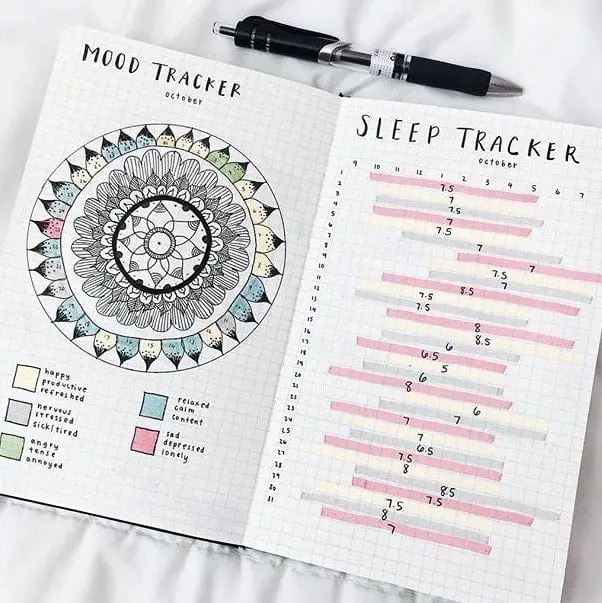 MOOD TRACKER
october
happy
productive
refreshed
nervous
stressed
sick/tired
angry
tense
annoyed
relaxed
calm
content
sad
depressed
lonely
SLEEP TRACKER
october
9 10 11 12 1 2 3 4 5 6 7
1
2
3
4
5
6
7
8
9
10
11
12
13
14
15
16
17
18
19
20
21
22
23
24
25
26
27
28
29
30
31
7.5
7
7.5
7.5
7
7
7.5
8.5
7.5
7.5
8
8.5
6
6.5
5
6
8
6
7 7
7
6.5
7.5
8
8.5
7.5
7.5
8
7